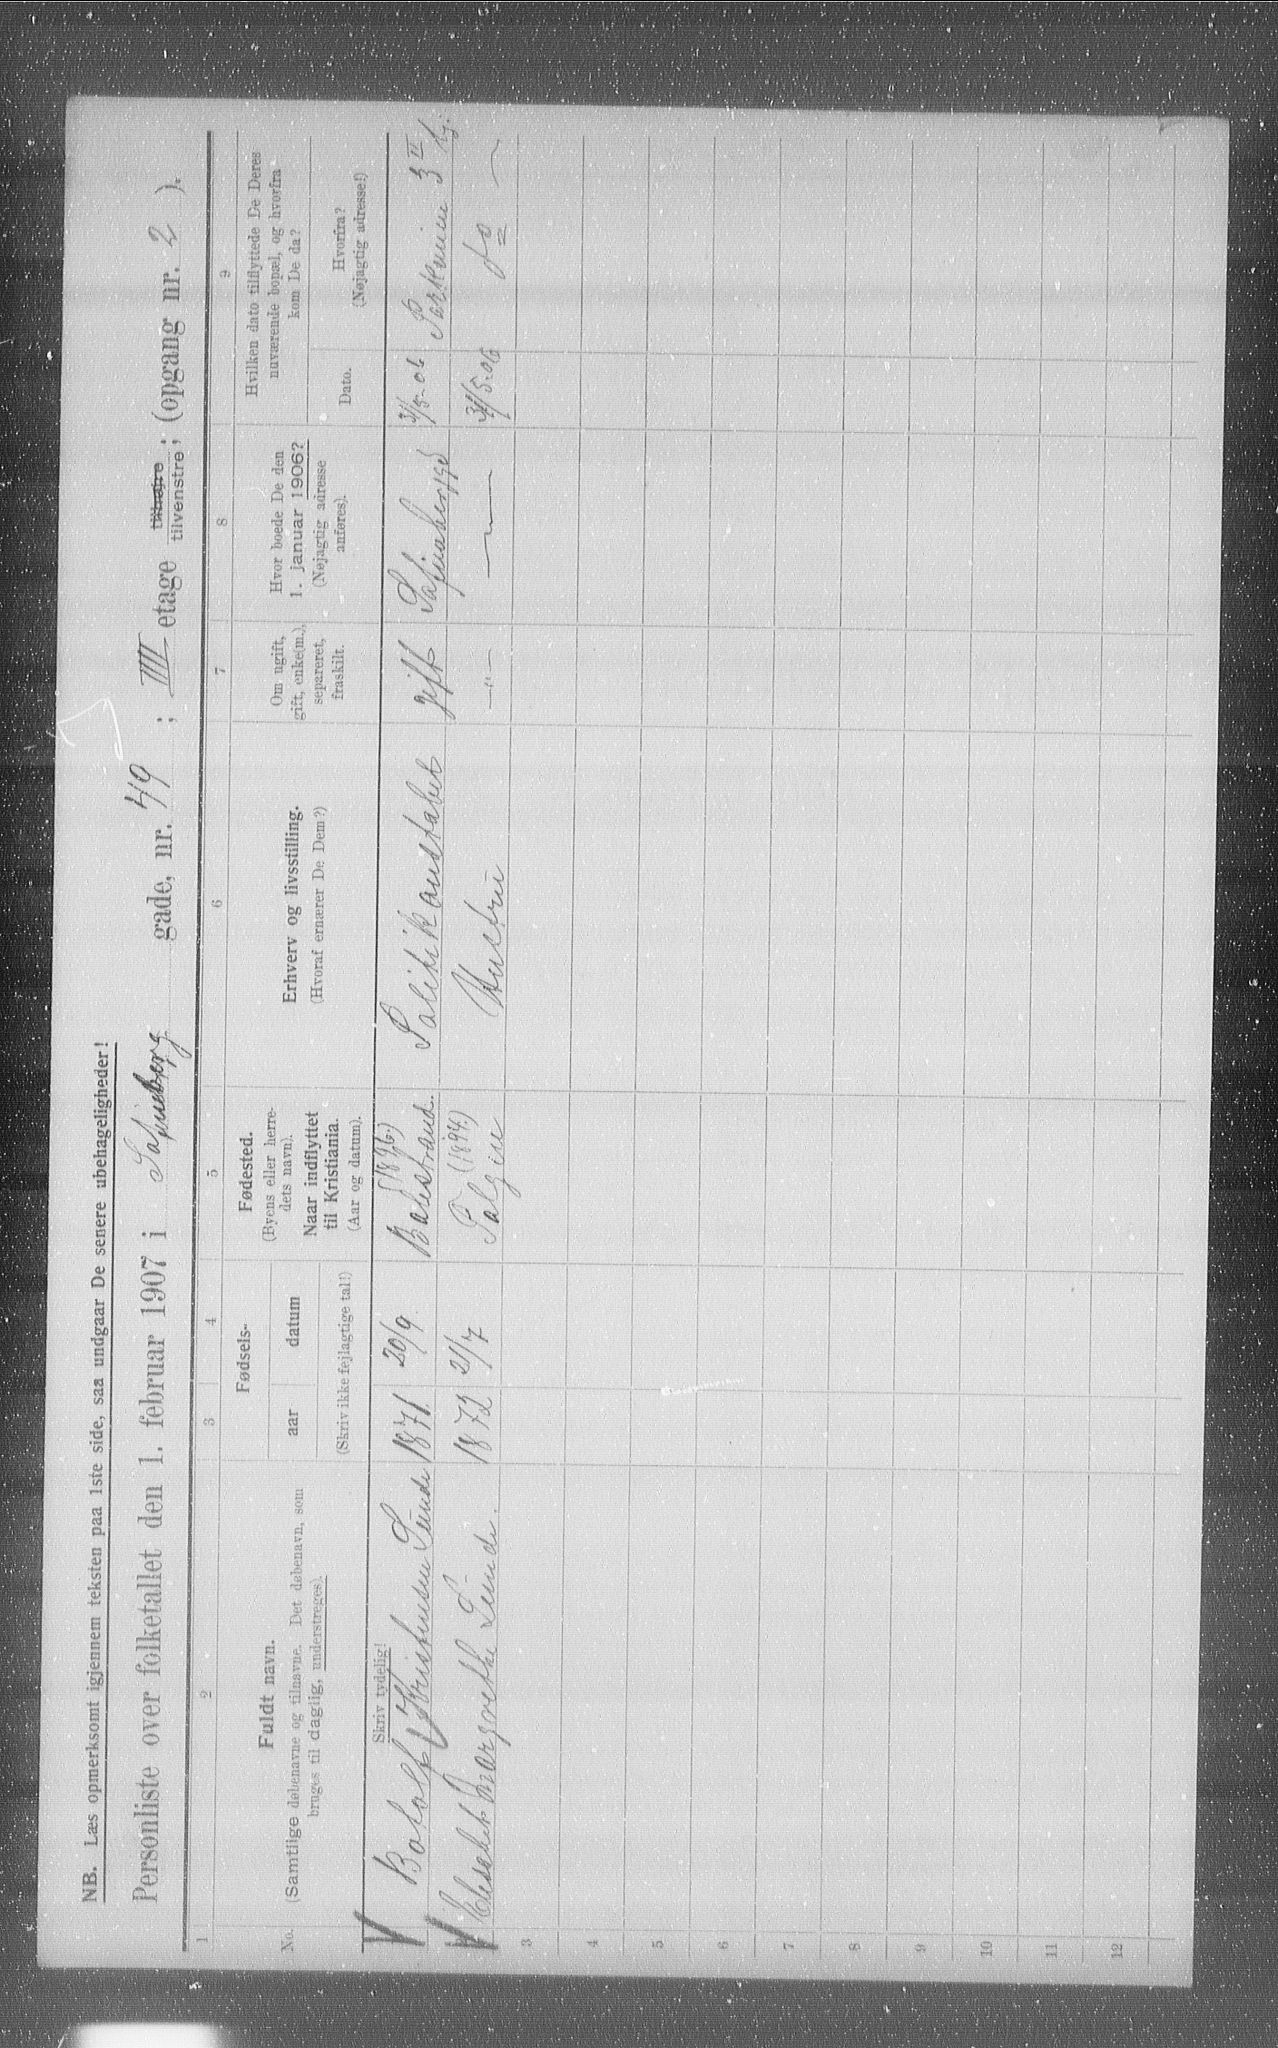 NB. Læs opmerksomt igjennem teksten paa 1ste side, saa undgaar De senere ubehageligheder!
Personliste over folketallet den 1. februar 1907 i Sofienberg gade, nr. 49 ; IIII etage tilhøjre ; tilvenstre; (opgang nr. 2 ).
1 2 3 4 5 6 7 8 9
No.
Fuldt navn.
(Samtlige døbenavne og tilnavne. Det døbenavn, som
bruges til daglig, understreges).
Fødsels-
aar datum
(Skriv ikke fejlagtige tal!)
Fødested.
(Byens eller herre-
dets navn).
Naar indflyttet
til Kristiania.
(Aar og datum).
Erhverv og livsstilling.
(Hvoraf ernærer De Dem?)
Om ugift,
gift, enke(m.),
separeret,
fraskilt.
Hvor boede De den
1. januar 1906?
(Nøjagtig adresse
anføres).
Hvilken dato tilflyttede De Deres
nuværende bopæl, og hvorfra
kom De da?
Dato.
Hvorfra?
(Nøjagtig adresse!)
Skriv tydelig!
Botolf Kristensen Sunde 1871. 20/9. (1896.) Balestrand. Politikonstabel gift Sofienberggd 3/5-06 3 II
Elisabet Margrethe Sunde. 1872 21/7 (1894.) Hustru —"— 3/5.06 do
3
4
5
6
7
8
9
10
11
12